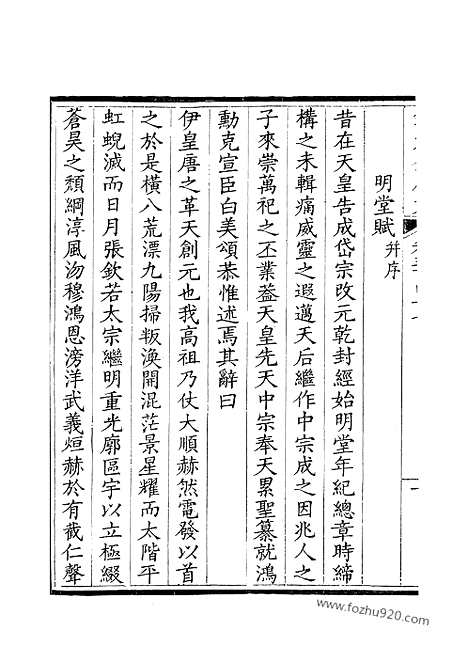 明堂賦 并序
昔在天皇告成岱宗改元乾封經始明堂年紀總章時締
構之未輯痛威靈之遐邁天后繼作中宗成之因兆人之
子來崇萬祀之丕業葢天皇先天中宗奉天累聖纂就鴻
勳克宣臣白美頌恭惟述焉其辭曰
伊皇唐之革天創元也我高祖乃仗大順赫然電發以首
之於是橫八荒漂九陽掃叛渙開混茫景星耀而太階平
虹蜺滅而日月張欽若太宗繼明重光廓區宇以立極綴
蒼昊之頹綱淳風沕穆鴻恩滂洋武義烜赫於有截仁聲
www.fozhu920.com